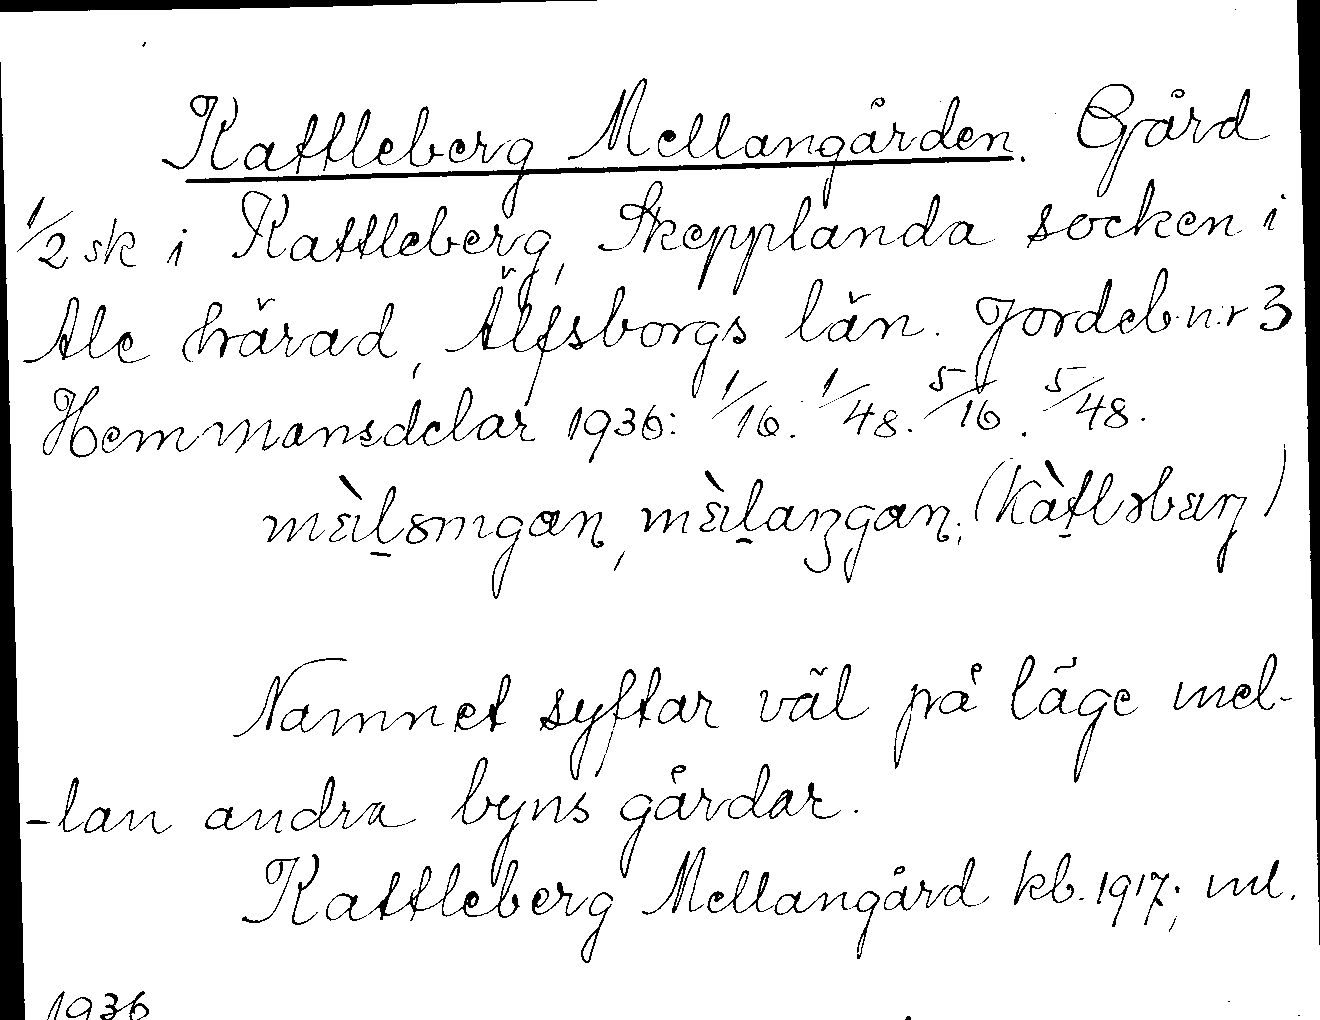 Kattleberg Mellangården. Gård
1/2 sk i Kattleberg, Skepplanda socken i
Ale härad, Älfsborgs län. Jordeb. n:r 3
Hemmansdelar 1936: 1/16. 1/48. 5/16. 5/48.
Namnet syftar väl på läge mel-
-lan andra byns gårdar.
Kattleberg Mellangård kb. 1917; ml.
1936